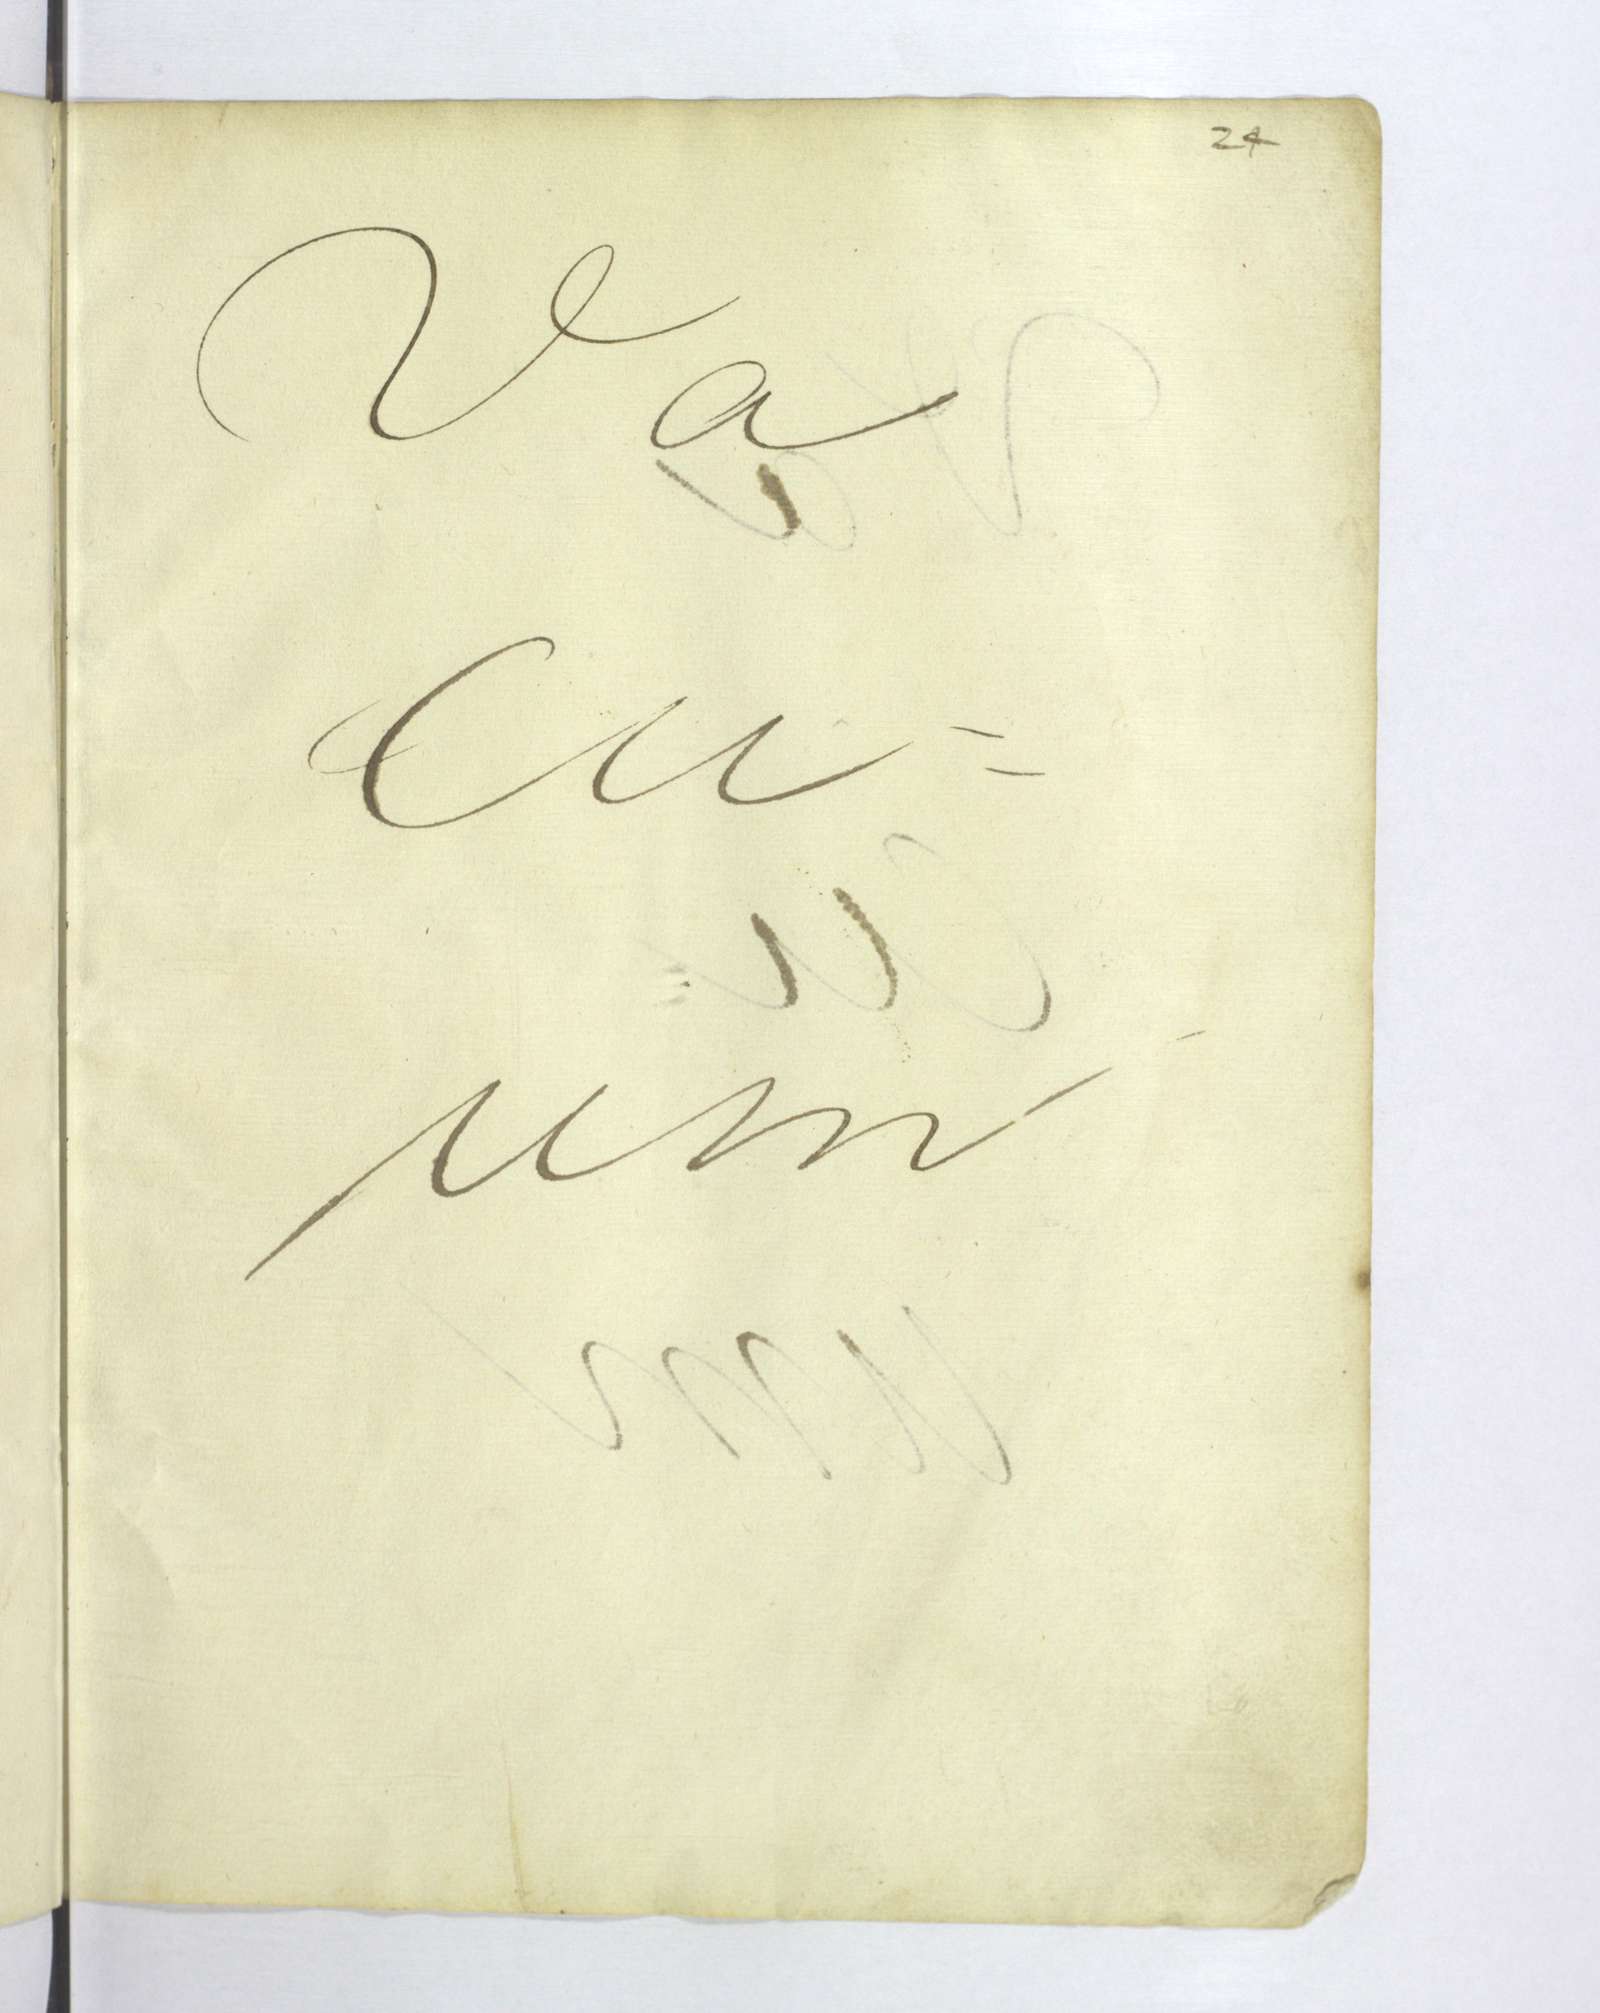 24
Va
cu=
um